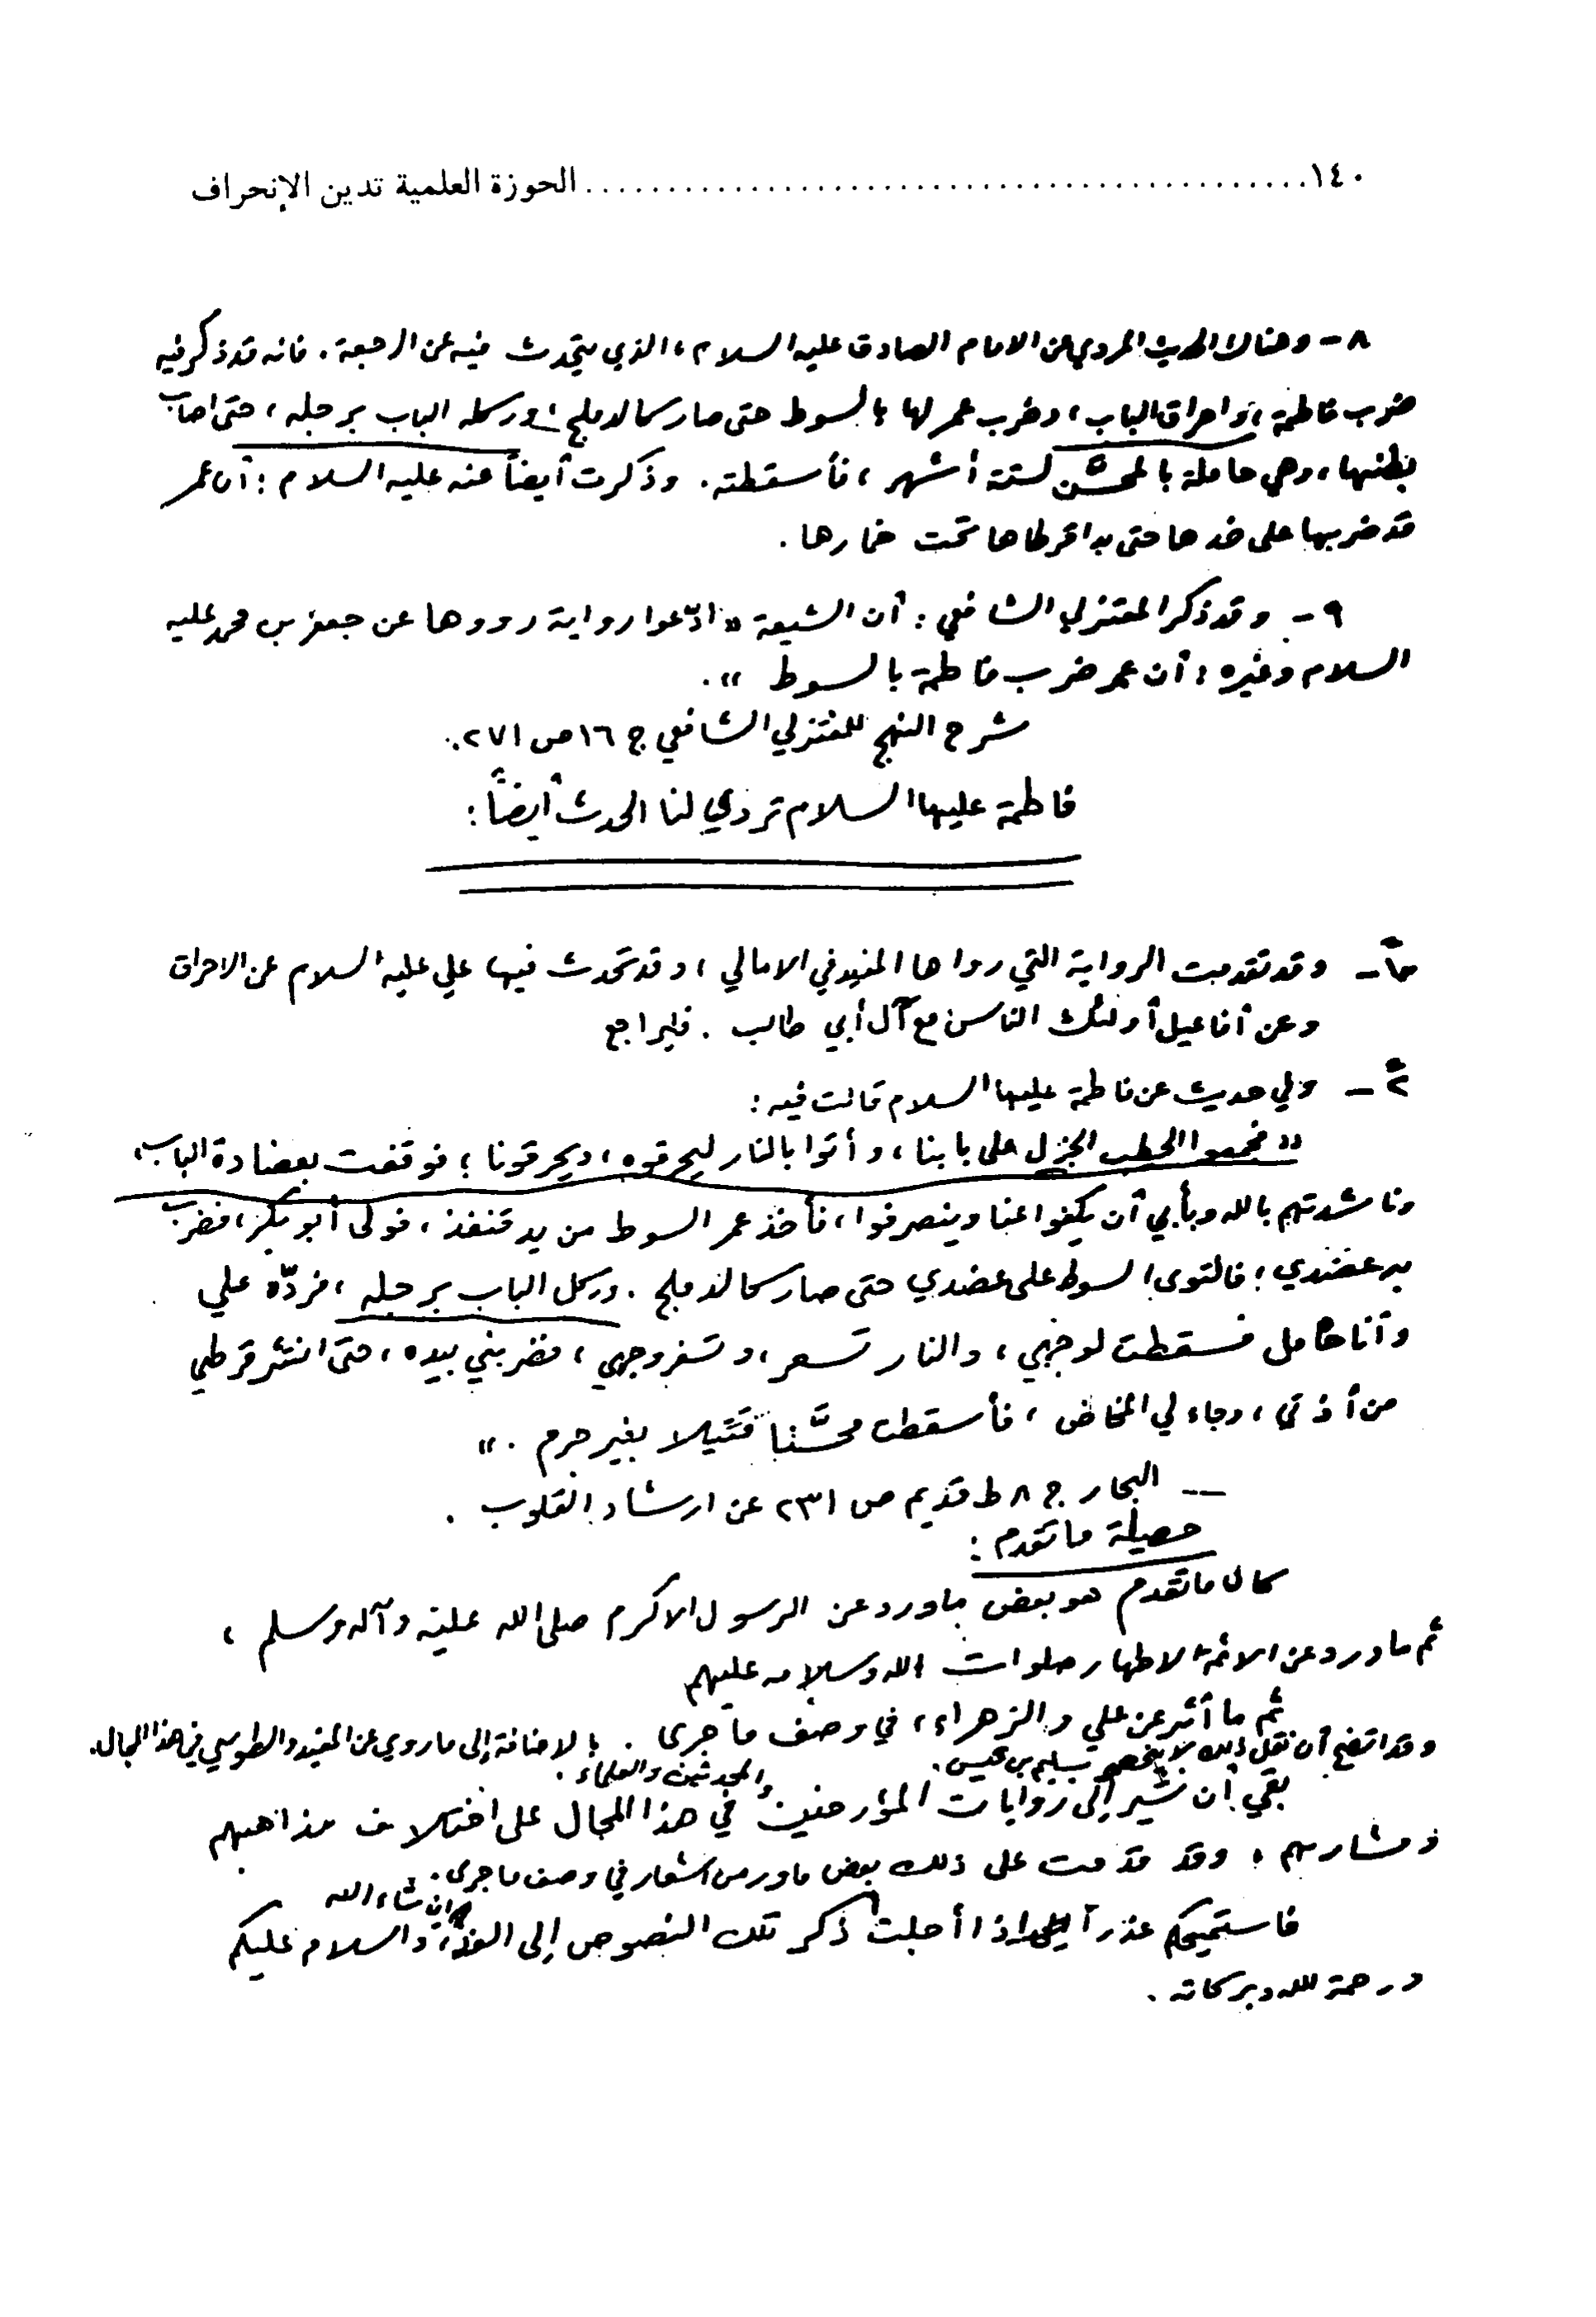 ١٤٠ ............................................ الحوزة العلمية تدين الإنحراف
٨ - وهناك الحديث المروي عن الامام الصادق عليه السلام، الذي يتحدث فيه عن الرجعة. فانه قد ذكر فيه
ضرب فاطمة، واحراق الباب، وضرب عمر لها بالسوط حتى صار كالدملج، وركله الباب برجله، حتى اصاب
بطنها، وهي حاملة بالمحسن لستة أشهر، فأسقطته. وذكرت أيضاً عنه عليه السلام: أن عمر
قد ضربها على خدها حتى بدا قرطاها تحت خمارها.
٩ - وقد ذكر المعتزلي الشافعي: أن الشيعة «ادّعوا رواية رووها عن جعفر بن محمد عليه
السلام وغيره: أن عمر ضرب فاطمة بالسوط».
شرح النهج للمعتزلي الشافعي ج ١٦ ص ٢٧١.
فاطمة عليها السلام تروي لنا الحدث أيضاً:
١ - وقد تقدمت الرواية التي رواها المفيد في الامالي، وقد تحدث فيها علي عليه السلام عن الاحراق
وعن أفاعيل أولئك الناس مع آل أبي طالب. فليراجع
٢ - وفي حديث عن فاطمة عليها السلام قالت فيه:
«فجمعوا الحطب الجزل على بابنا، وأتوا بالنار ليحرقوه، ويحرقونا؛ فوقفت بعضادة الباب،
وناشدتهم بالله وبأبي أن يكفوا عنا وينصرفوا، فأخذ عمر السوط من يد قنفذ، مولى أبو بكر، فضرب
به عضدي؛ فالتوى السوط على عضدي حتى صار كالدملج. وركل الباب برجله، فردّه علي
وأنا حامل فسقطت لوجهي، والنار تسعر، وتسفر وجهي، فضربني بيده، حتى انتثر قرطي
من أذني، وجاء لي المخاض، فأسقطت محسّناً قتيلا بغير جرم.»
— البحار ج ٨ ط قديم ص ٢٣١ عن ارشاد القلوب.
حصيلة ما تقدم:
كان ما تقدم هو بعض ما ورد عن الرسول الاكرم صلى الله عليه وآله وسلم،
ثم ما ورد عن الائمة الاطهار صلوات الله وسلامه عليهم
ثم ما أثر عن علي والزهراء، في وصف ما جرى. بالاضافة إلى ما روي عن المفيد والطوسي في هذا المجال.
وقد اتضح أن نقل ذلك لا ينحصر بسليم بن قيس.
بقي أن نشير إلى روايات المؤرخين والمحدثين والعلماء. في هذا المجال على اختلاف مذاهبهم
ومشاربهم، وقد قدمت على ذلك بعض ما ورد من اشعار في وصف ما جرى.
فاستميحكم عذراً إذا أجلت ذكر تلك النصوص إلى الغد، ان شاء الله والسلام عليكم
ورحمة الله وبركاته.